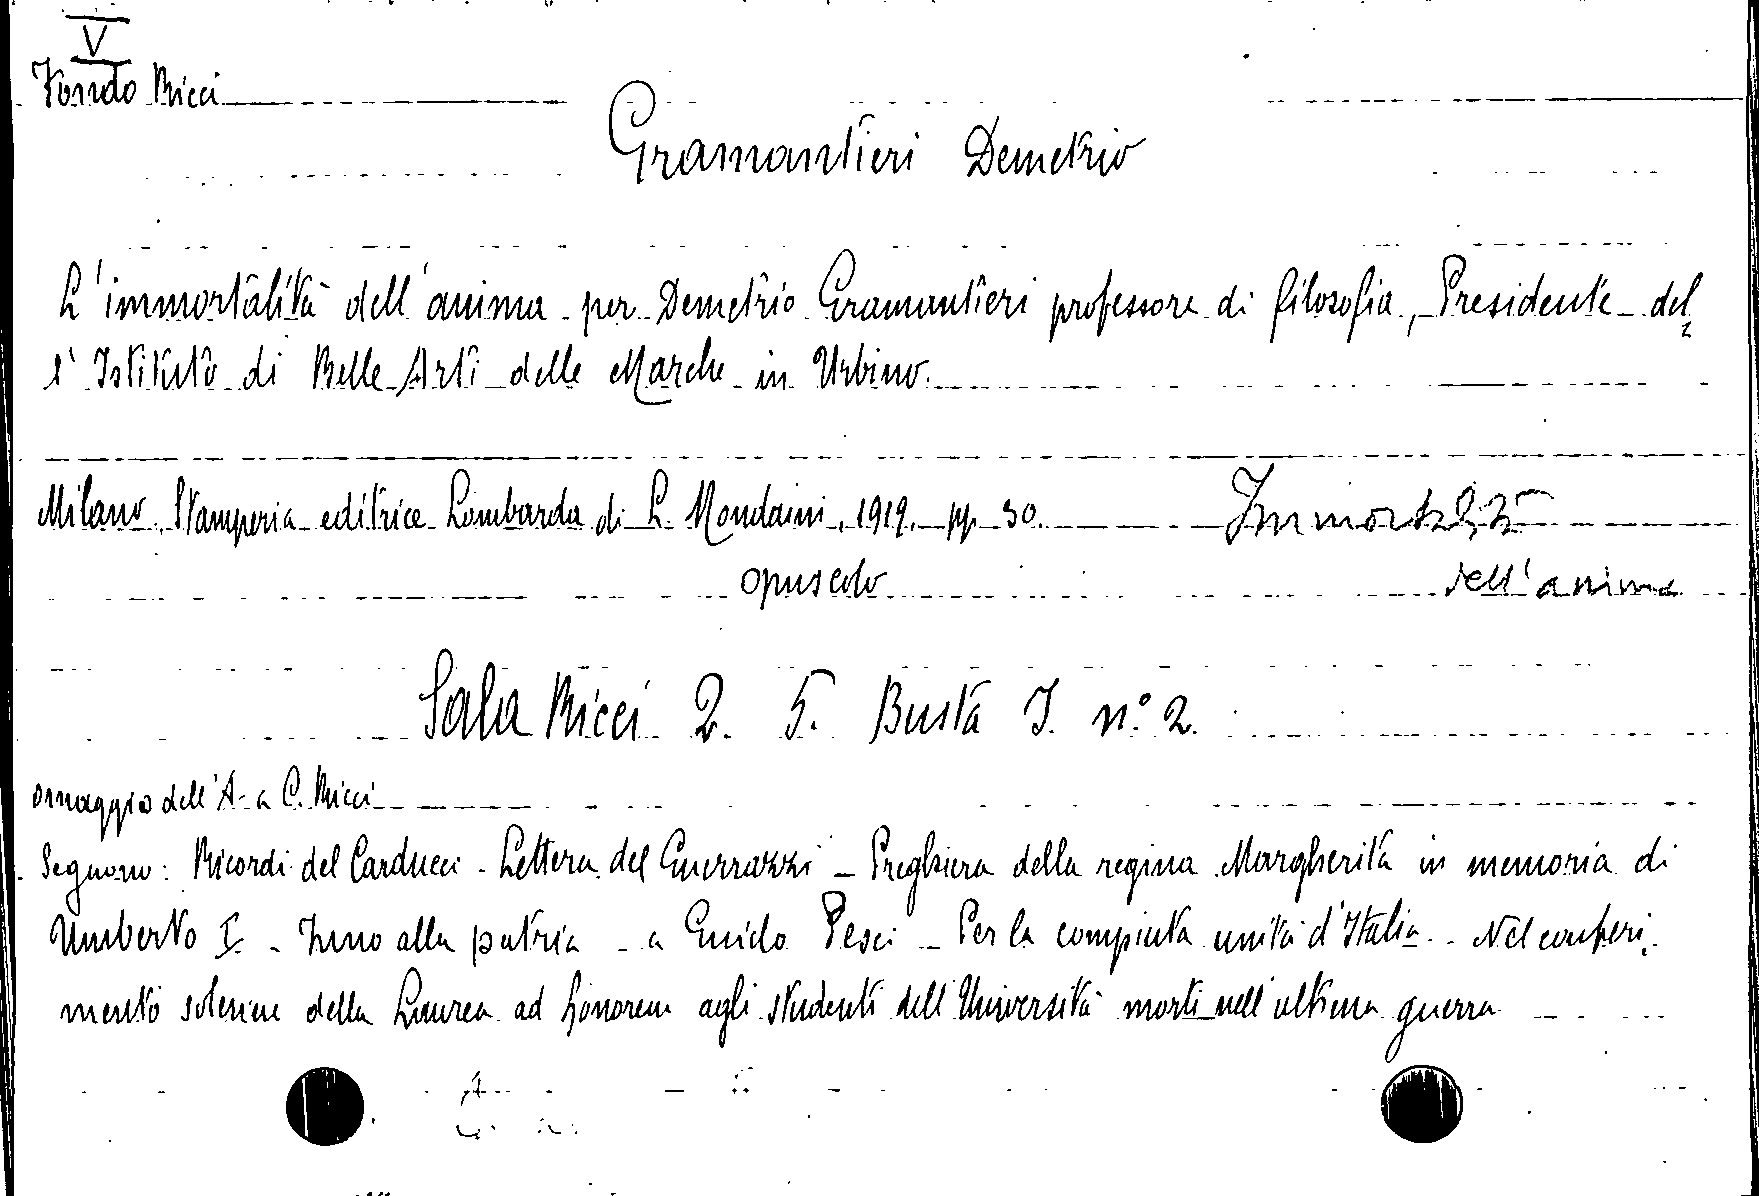 V
Fondo Ricci
Gramantieri Demetrio
L'immortalità dell'anima per Demetrio Gramantieri professore di filosofia, Presidente del
l'Istituto di Belle Arti delle Marche in Urbino.
Milano, Stamperia editrice Lombarda di L. Mondaini, 1919, pp. 30. Immortalità
opuscolo dell'anima
Sala Ricci 2. 5. Busta I. n.° 2.
omaggio dell'A. a C. Ricci
Seguono: Ricordi del Carducci - Lettera del Guerrazzi - Preghiera della regina Margherita in memoria di
Umberto I. - Inno alla patria - a Guido Pesci - Per la compiuta unità d'Italia - Nel conferi
mento solenne della Laurea ad honorem agli studenti dell'Università morti nell'ultima guerra